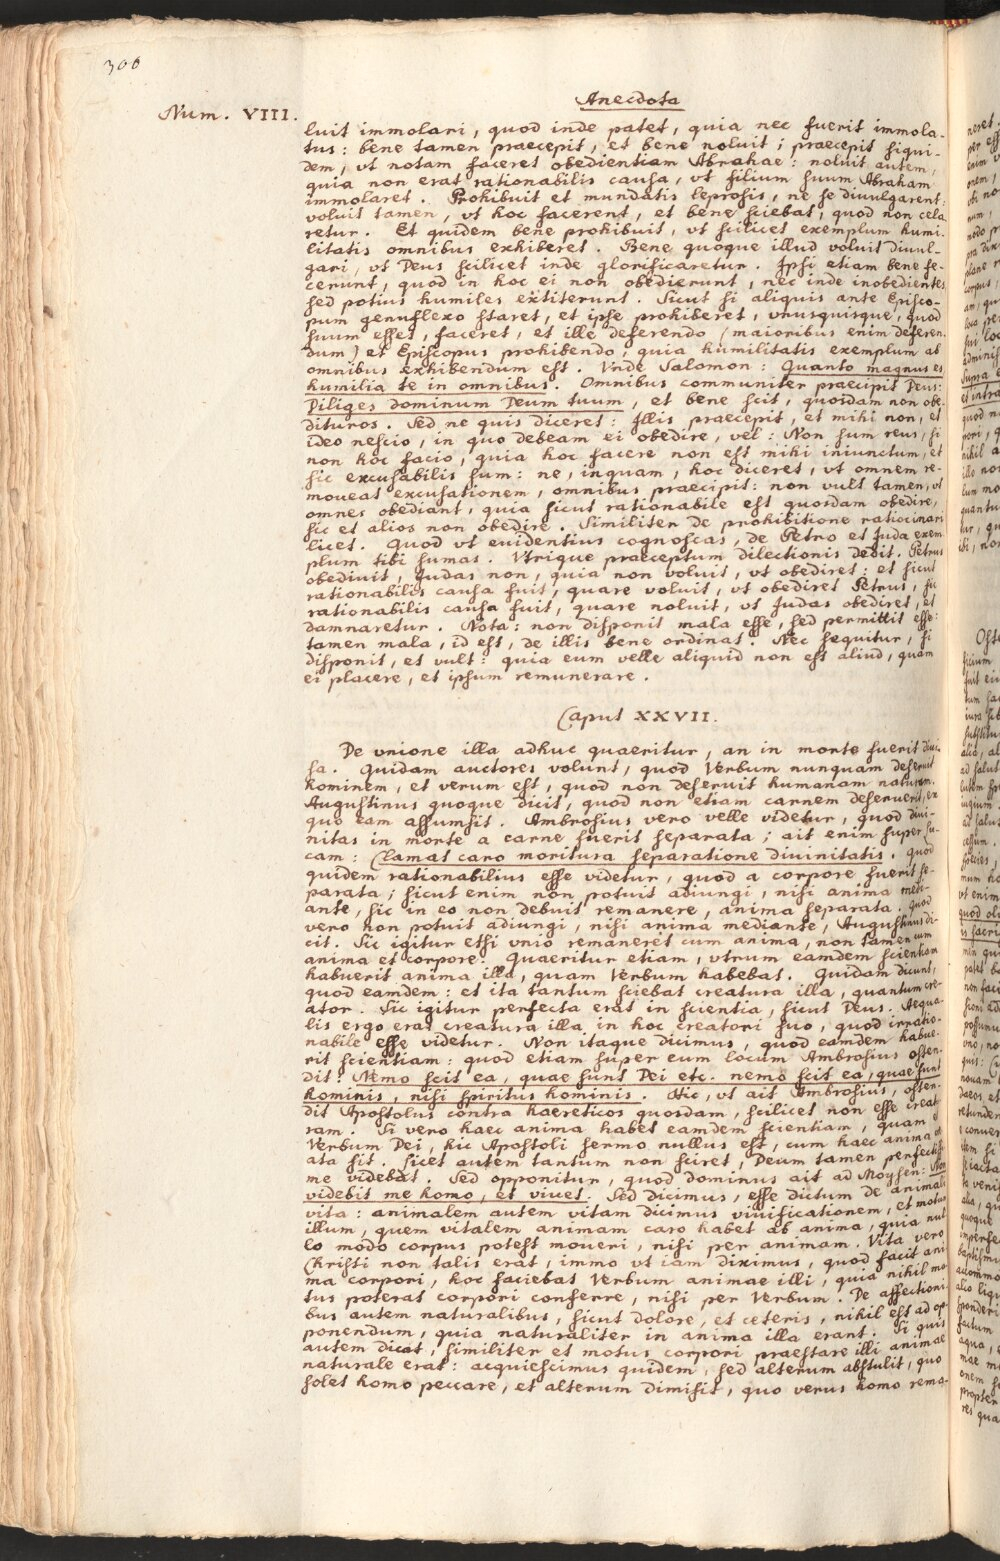 300
Anecdota
Num. VIII.
luit immolari, quod inde patet, quia nec fuerit immola-
tus: bene tamen praecepit, et bene noluit; praecepit siqui-
dem, vt notam faceret obedientiam Abrahae: noluit autem,
quia non erat rationabilis causa, vt filium suum Abraham
immolaret. Prohibuit et mundatis leprosis, ne se diuulgarent:
voluit tamen, vt hoc facerent, et bene sciebat, quod non cela
retur. Et quidem bene prohibuit, vt scilicet exemplum humi-
litatis omnibus exhiberet. Bene quoque illud voluit diuul-
gari, vt Deus scilicet inde glorificaretur. Ipsi etiam bene fe-
cerunt, quod in hoc ei non obedierunt, nec inde inobedientes
sed potius humiles extiterunt. Sicut si aliquis ante Episco-
pum genuflexo staret, et ipse prohiberet, vnusquisque, quod
suum esset, faceret, et ille deferendo, (maioribus enim deferen
dum) et Episcopus prohibendo, quia humilitatis exemplum ab
omnibus exhibendum est. Vnde Salomon: Quanto magnus es
humilia te in omnibus. Omnibus communiter praecipit Deus:
Diliges dominum Deum tuum, et bene scit, quosdam non obe-
dituros. Sed ne quis diceret: Illis praecepit, et mihi non, et
ideo nescio, in quo debeam ei obedire, vel: Non sum reus, si
non hoc facio, quia hoc facere non est mihi iniunctum, et
sic excusabilis sum: ne, inquam, hoc diceret, vt omnem re-
moueat excusationem, omnibus praecipit: non vult tamen, vt
omnes obediant, quia sicut rationabile est quosdam obedire,
sic et alios non obedire. Similiter de prohibitione ratiocinari
licet. Quod vt euidentius cognoscas, de Petro et Juda exem
plum tibi sumas. Vtrique praeceptum dilectionis dedit. Petrus
obediuit, Judas non, quia non voluit, vt obediret: et sicut
rationabilis causa fuit, quare voluit, vt obediret Petrus, sic
rationabilis causa fuit, quare noluit, vt Judas obediret, et
damnaretur. Nota: non disponit mala esse, sed permittit esse:
tamen mala, id est, de illis bene ordinat. Nec sequitur, si
disponit, et vult: quia eum velle aliquid non est aliud, quam
ei placere, et ipsum remunerare.
Caput XXVII.
De vnione illa adhuc quaeritur, an in morte fuerit diui-
sa. Quidam auctores volunt, quod Verbum nunquam deseruit
hominem, et verum est, quod non deseruit humanam naturam.
Augustinus quoque dicit, quod non etiam carnem deseruerit, ex
quo eam assumsit. Ambrosius vero velle videtur, quod diui-
nitas in morte a carne fuerit separata; ait enim super Lu-
cam: Clamat caro moritura separatione diuinitatis. Quod
quidem rationabilius esse videtur, quod a corpore fuerit se-
parata; sicut enim non potuit adiungi, nisi anima medi-
ante, sic in eo non debuit remanere, anima separata. Quod
vero non potuit adiungi, nisi anima mediante, Augustinus di-
cit. Sic igitur etsi vnio remaneret cum anima, non tamen cum
anima et corpore. Quaeritur etiam, vtrum eamdem scientiam
habuerit anima illa, quam Verbum habebat. Quidam dicunt,
quod eamdem: et ita tantum sciebat creatura illa, quantum cre-
ator. Sic igitur perfecta erat in scientia, sicut Deus. Aequa-
lis ergo erat creatura illa in hoc creatori suo, quod irratio-
nabile esse videtur. Non itaque dicimus, quod eamdem habue-
rit scientiam: quod etiam super eum locum Ambrosius osten-
dit: Nemo scit ea, quae sunt Dei etc. nemo scit ea, quae sunt
hominis, nisi spiritus hominis. Hic, vt ait Ambrosius, osten-
dit Apostolus contra haereticos quosdam, scilicet non esse creat
ram. Si vero haec anima habet eamdem scientiam, quam et
Verbum Dei, hic Apostoli sermo nullus est, cum haec anima cre
ata sit. Licet autem tantum non sciret, Deum tamen perfectiss
me videbat. Sed opponitur, quod dominus ait ad Moysen: Non
videbit me homo, et viuet. Sed dicimus, esse dictum de animali
vita: animalem autem vitam dicimus viuificationem, et motum
illum, quem vitalem animam caro habet ab anima, quia nul
lo modo corpus potest moueri, nisi per animam. Vita vero
Christi non talis erat, immo vt iam diximus, quod facit ani
ma corpori, hoc faciebat Verbum animae illi, quia nihil mo
tus poterat corpori conferre, nisi per Verbum. De affectioni-
bus autem naturalibus, sicut dolore, et ceteris, nihil est ad op-
ponendum, quia naturaliter in anima illa erant. Si quis
autem dicat, similiter et motus corpori praestare illi animae
naturale erat: acquiescimus quidem, sed alterum abstulit, quo
solet homo peccare, et alterum dimisit, quo verus homo rema-